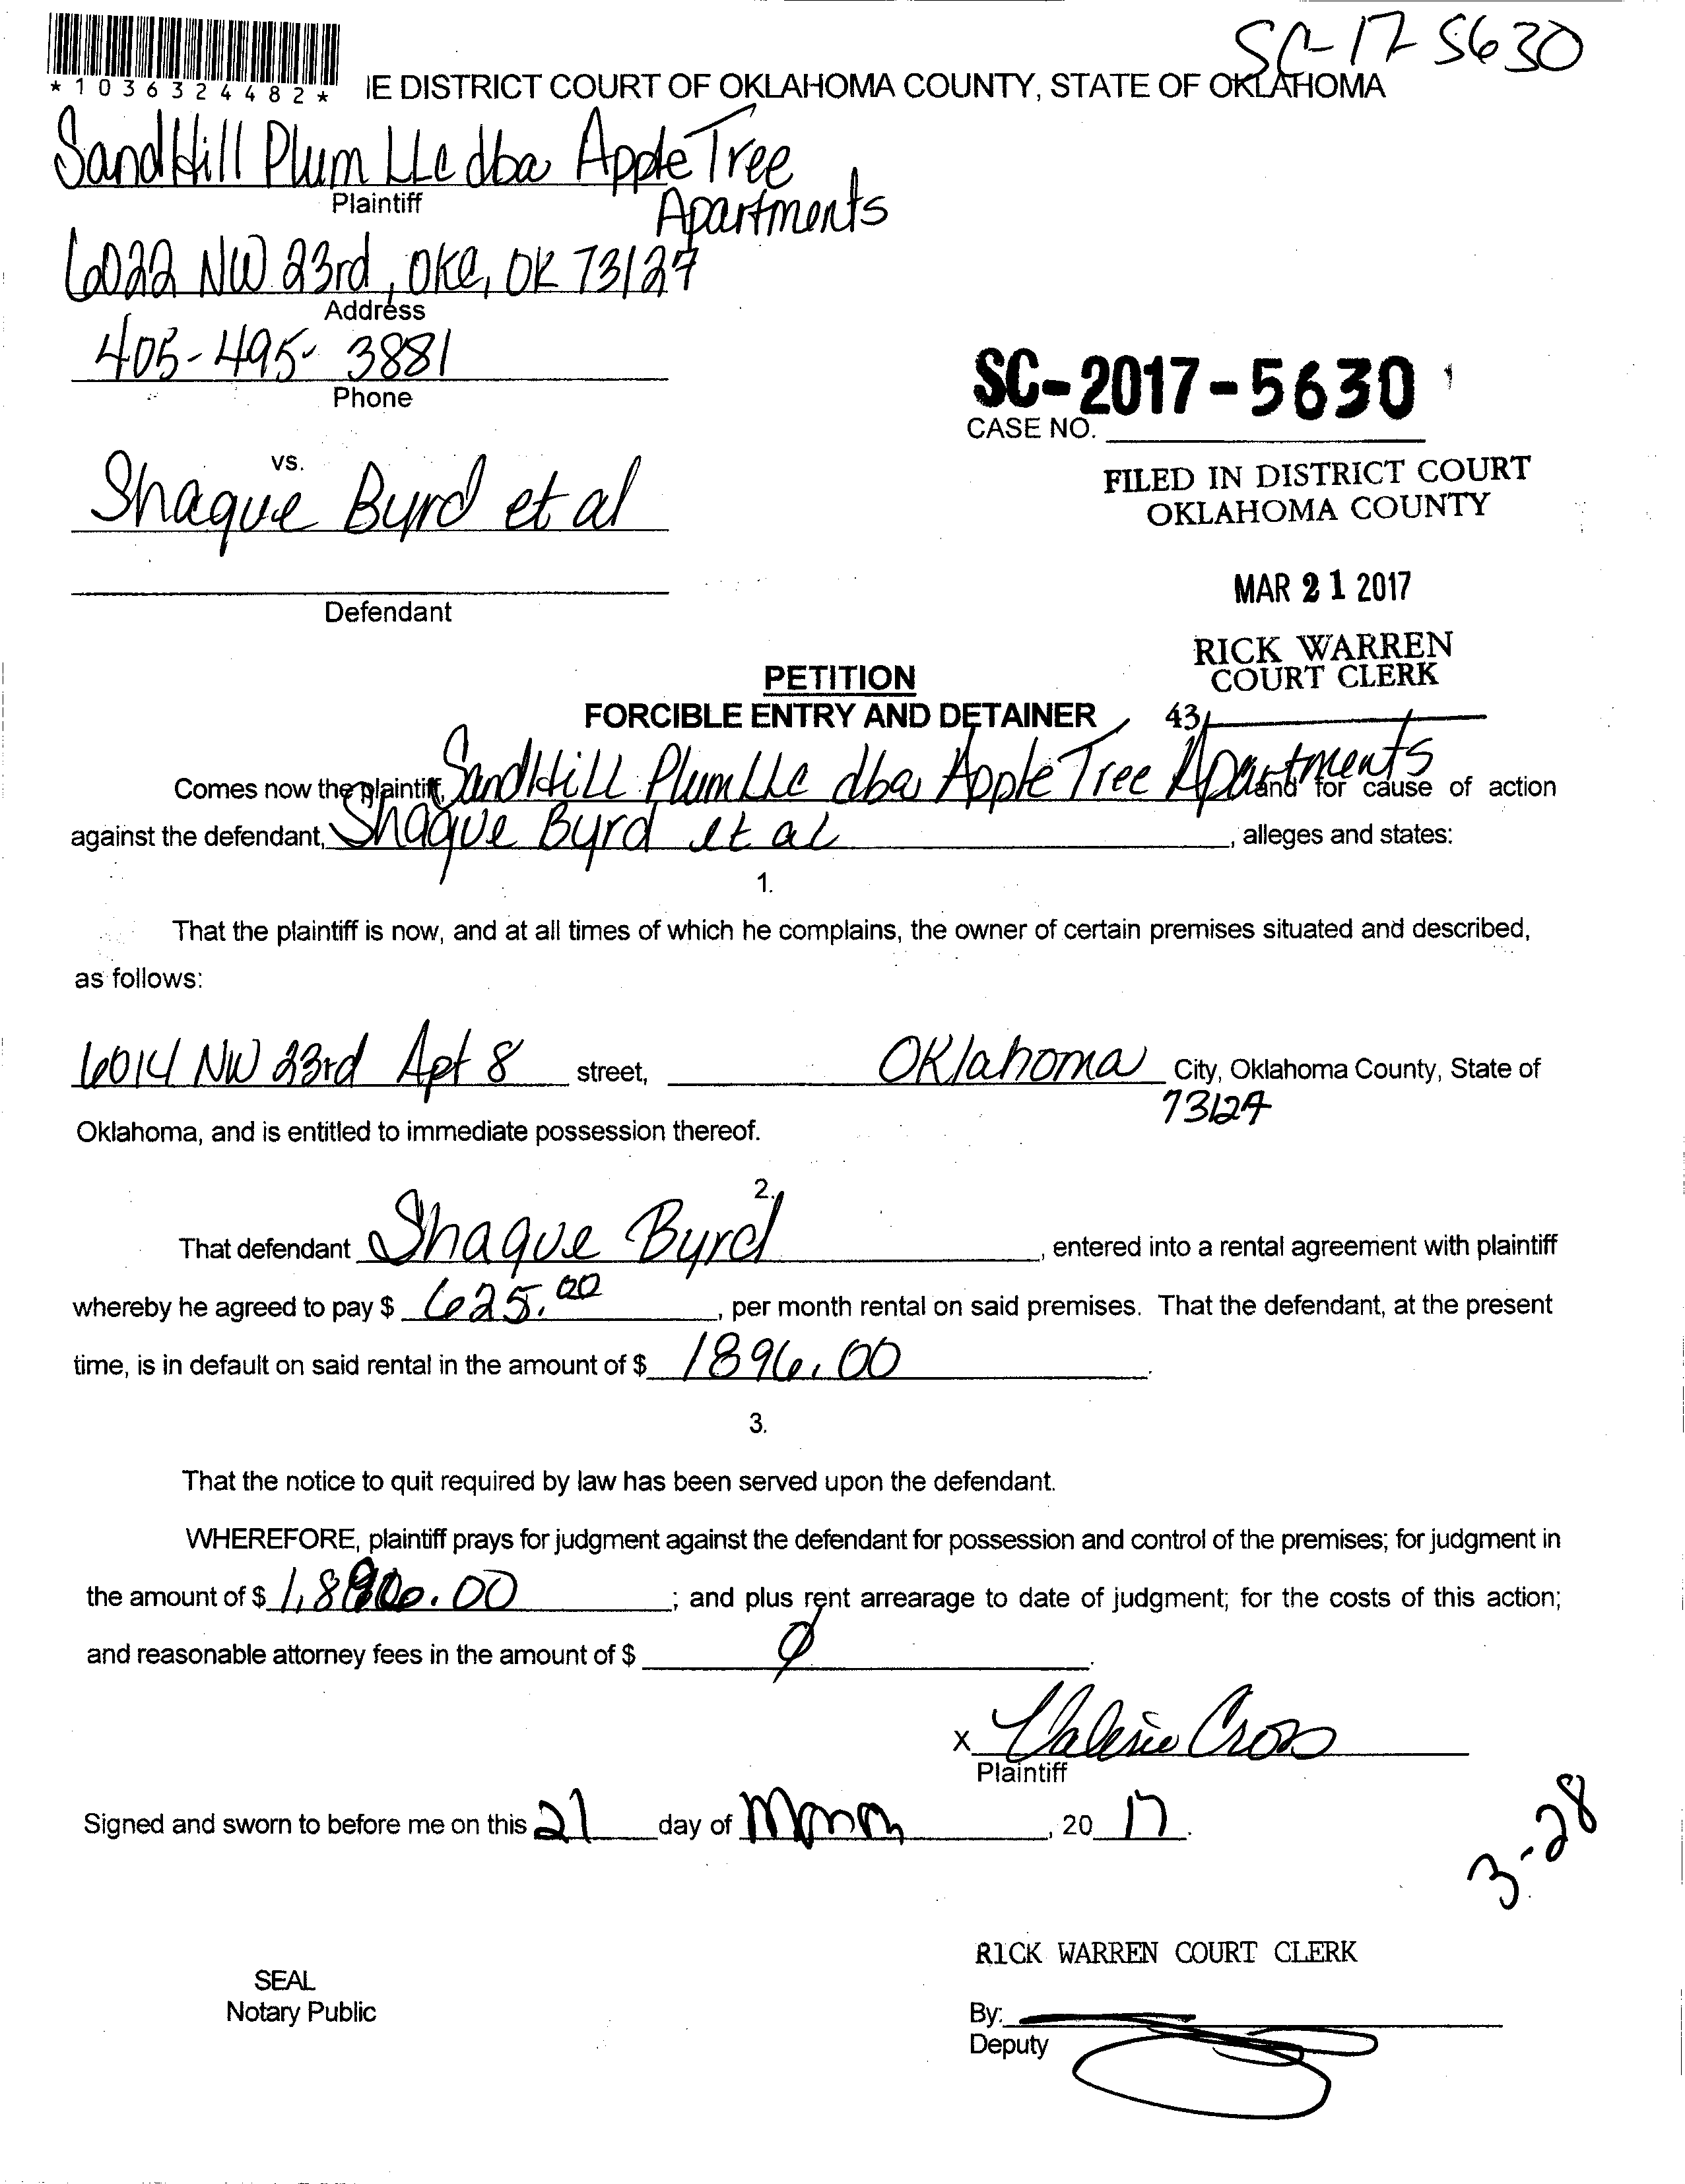 SC-17-5630
*1036324482*
IE DISTRICT COURT OF OKLAHOMA COUNTY, STATE OF OKLAHOMA
SandHill Plum LLC dba Apple Tree
Apartments
Plaintiff
6022 NW 23rd, OKC, OK 73127
Address
405-495-3881
Phone
SC-2017-5630
CASE NO.
vs.
Shaque Byrd et al
FILED IN DISTRICT COURT
OKLAHOMA COUNTY
MAR 21 2017
Defendant
RICK WARREN
COURT CLERK
PETITION
FORCIBLE ENTRY AND DETAINER
43
Comes now the plaintiff, SandHill Plum LLC dba Apple Tree Apartments and for cause of action
against the defendant, Shaque Byrd et al, alleges and states:
1.
That the plaintiff is now, and at all times of which he complains, the owner of certain premises situated and described,
as follows:
6014 NW 23rd Apt 8 street, Oklahoma City, Oklahoma County, State of
73127
Oklahoma, and is entitled to immediate possession thereof.
2.
That defendant Shaque Byrd, entered into a rental agreement with plaintiff
whereby he agreed to pay $ 625.00, per month rental on said premises. That the defendant, at the present
time, is in default on said rental in the amount of $ 1896.00.
3.
That the notice to quit required by law has been served upon the defendant.
WHEREFORE, plaintiff prays for judgment against the defendant for possession and control of the premises; for judgment in
the amount of $ 1,896.00; and plus rent arrearage to date of judgment; for the costs of this action;
and reasonable attorney fees in the amount of $ Ø.
X Valerie Cross
Plaintiff
Signed and sworn to before me on this 21 day of March, 2017.
3-28
RICK WARREN COURT CLERK
SEAL
Notary Public
By:
Deputy